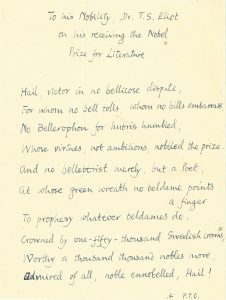 To his Nobility, Dr. T.S. Eliot
on his receiving the Nobel
Prize for Literature
Hail, victor in no bellicose dispute,
For whom no bell tolls, whom no bills embarrass
No Bellerophon for hubris humbled,
Whose virtues, not ambitions, nobbled the prize
And no belletrist merely, but a Poet,
At whose green wreath no beldame points
a finger
To prophesy whatever beldames do.
Crowned by one-fifty-thousand Swedish crowns*
Worthy a thousand thousand nobles more,
Admired of all, noble ennobelled, Hail!
* P.T.O.